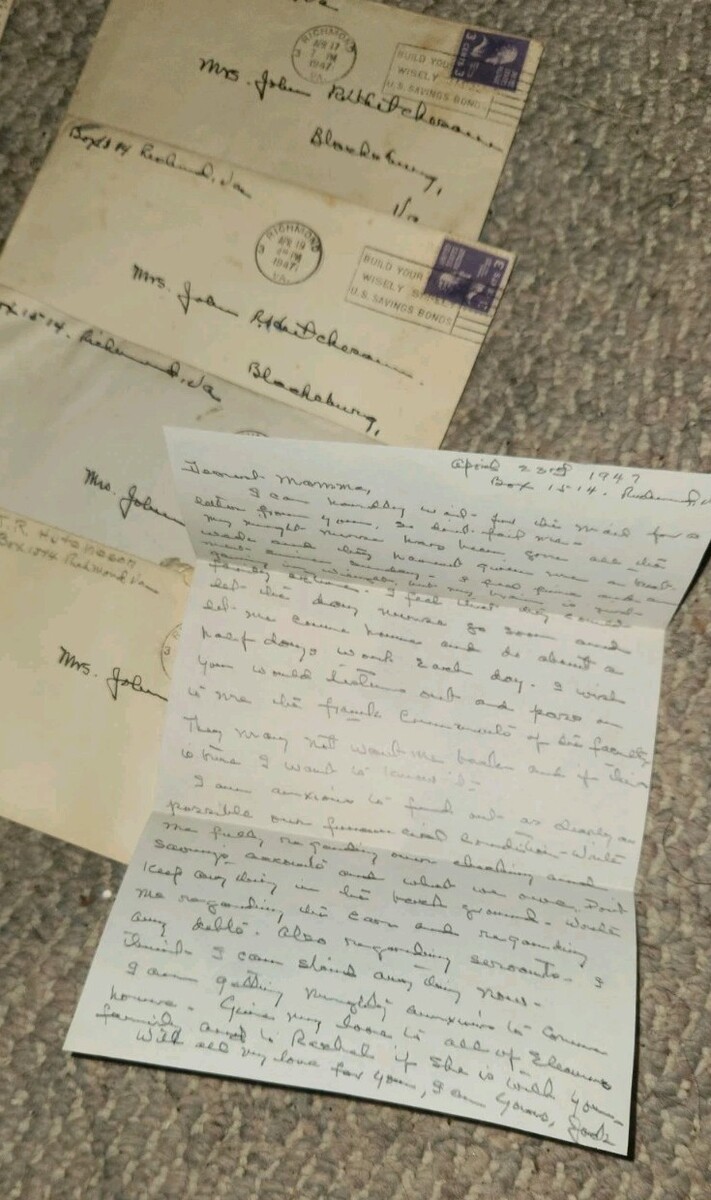 RICHMOND
3
APR 17
7 PM
1947
VA.
BUILD YOUR
WISELY
U.S. SAVINGS BONDS
3 CENTS 3
Mrs. John
Blacksburg,
Va
Box 1514 Richmond, Va
RICHMOND
3
APR 19
PM
1947
VA.
BUILD YOUR
WISELY
U.S. SAVINGS BONDS
Mrs. John
Blacksburg,
Box 1514. Richmond, Va
Mrs. John
T. R. Hutcheson
Box 1514 Richmond Va
Mrs. John
April 23rd 1947
Box 1514. Richmond, Va
Dearest Mamma,
I can hardly wait for the mail for a
letter from you. So don't fail me.
My night nurse have been gone all the
week and they havent given me a
since Sunday - I feel fine and am
gaining in weight, but my brain is not
active. I feel that they could
let the day nurse go soon and
let me come home and do about a
half days work each day. I wish
you would listen out and pass on
to me the frank comments of the faculty
They may not want me back and if this
is true I want to know it
I am anxious to find out as clearly as
possible our financial condition - Write
me fully regarding our checking and
savings accounts and what we owe. Dont
keep any thing in the back ground. Write
me regarding the cars and regarding
any debts. Also regarding servants. I
think I can stand any thing now.
I am getting mighty anxious to come
home. Give my love to all of Eleanors
family and to Rachel if she is with you.
With all my love for you, I am yours, Jack